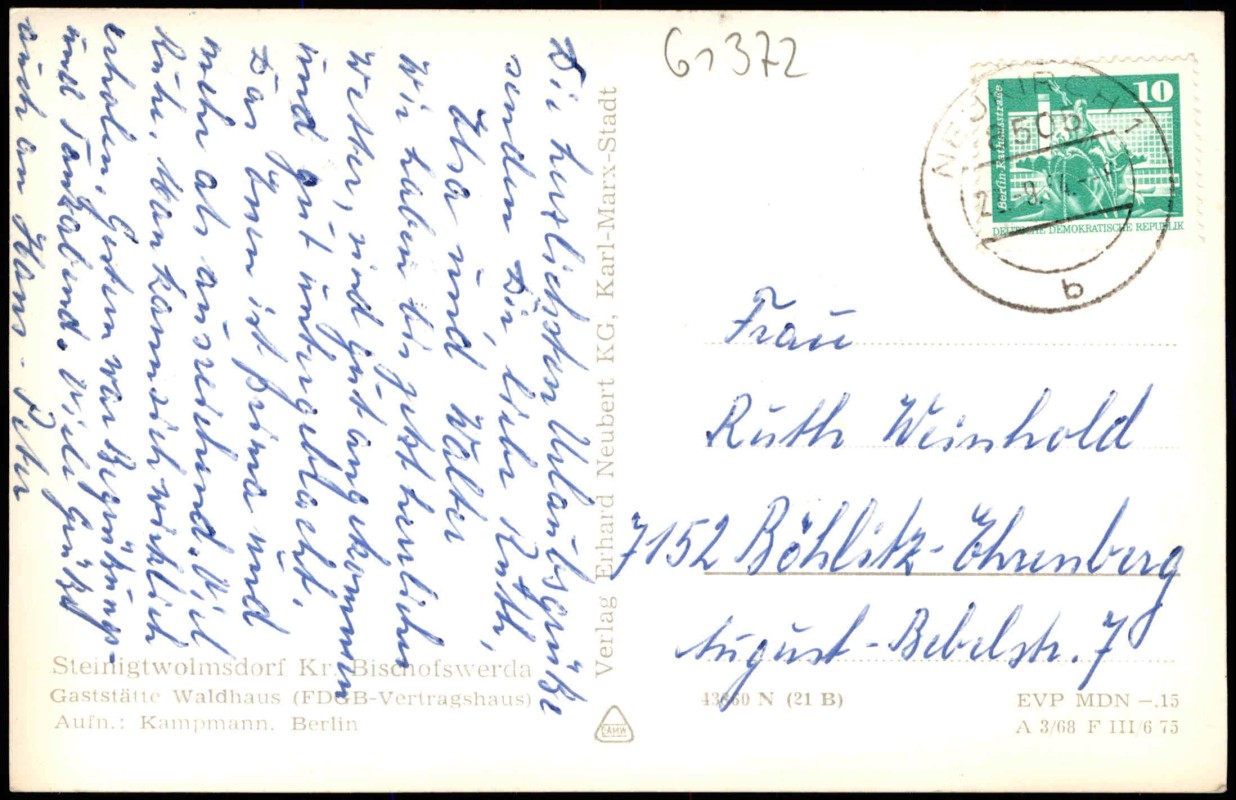 Die herzlichsten Urlaubsgrüße
senden Dir, liebe Ruth,
Ilse und Walter
Wir haben bis jetzt herrliches
Wetter, sind gut angekommen
und gut untergebracht.
Das Essen ist prima und
mehr als ausreichend. Viel
Ruhe. Man kann sich wirklich
erholen. Gestern war Begrüßungs-
und Tanzabend. Viele Grüße
auch an Hans-Peter
Steinigtwolmsdorf Kr. Bischofswerda
Gaststätte Waldhaus (FDGB-Vertragshaus)
Aufn.: Kampmann, Berlin
Verlag Erhard Neubert KG, Karl-Marx-Stadt
G1372
10
Berlin-Rathausstraße
DEUTSCHE DEMOKRATISCHE REPUBLIK
NEUKIRCH 1
8505
b
Frau
Ruth Weinhold
7152 Böhlitz-Ehrenberg
August-Bebelstr. 7
43860 N (21 B)
EVP MDN –.15
A 3/68 F III/6 75